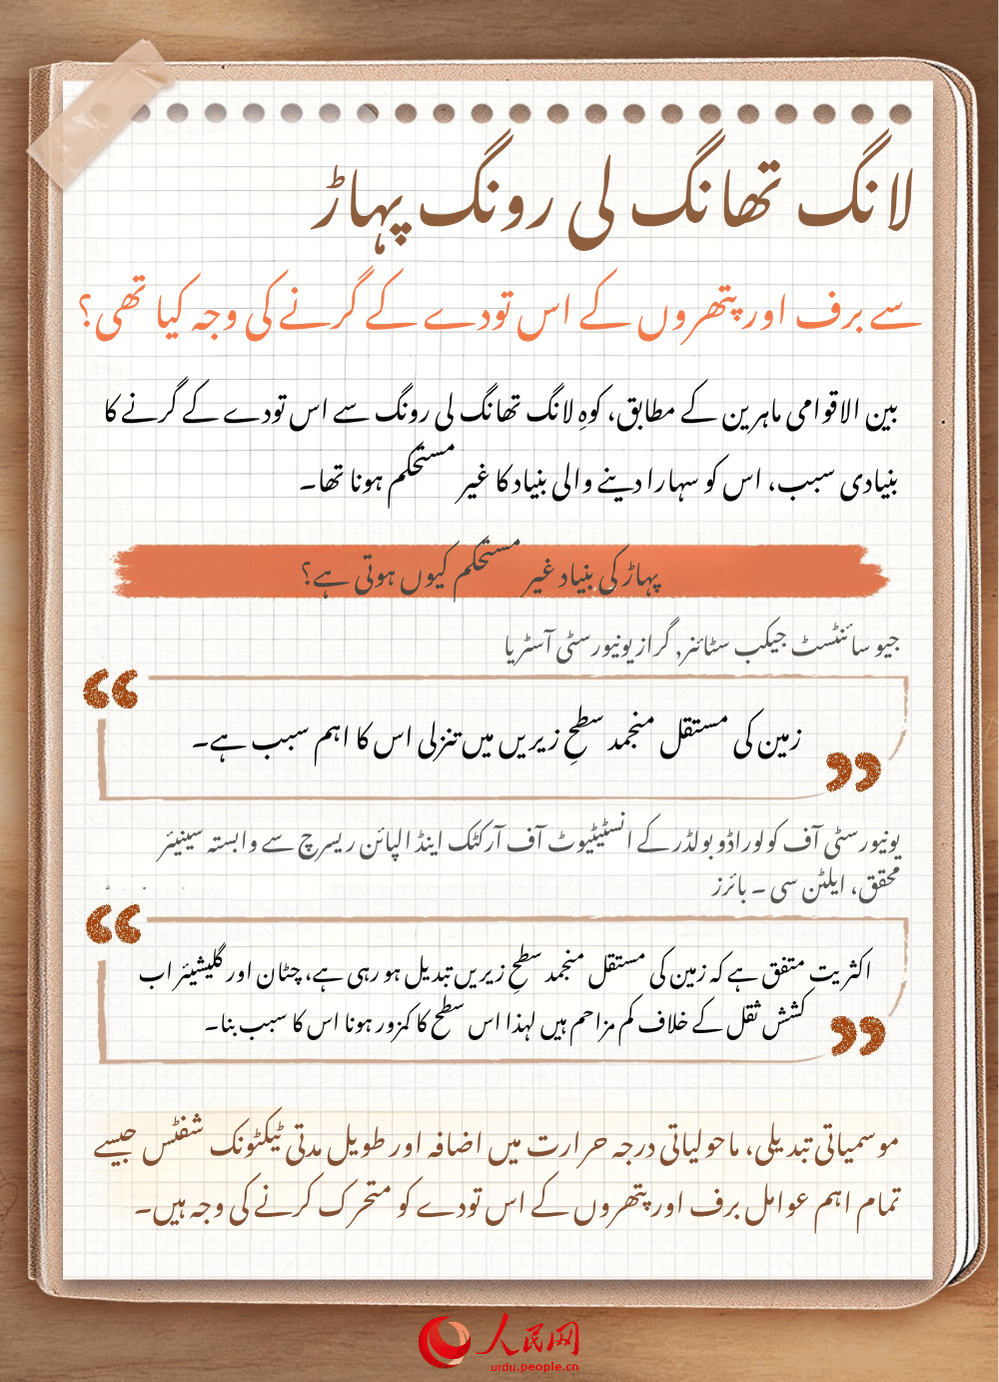 لانگ تھانگ لی رونگ پہاڑ
سے برف اور پتھروں کے اس تودے کے گرنے کی وجہ کیا تھی؟
بین الاقوامی ماہرین کے مطابق، کوہِ لانگ تھانگ لی رونگ سے اس تودے کے گرنے کا
بنیادی سبب، اس کو سہارا دینے والی بنیاد کا غیر مستحکم ہونا تھا۔
پہاڑ کی بنیاد غیر مستحکم کیوں ہوتی ہے؟
جیو سائنٹسٹ جیکب سٹائنر, گراز یونیورسٹی آسٹریا
زمین کی مستقل منجمد سطحِ زیریں میں تنزلی اس کا اہم سبب ہے۔
یونیورسٹی آف کولوراڈو بولڈر کے انسٹیٹیوٹ آف آرکٹک اینڈ الپائن ریسرچ سے وابستہ سینیئر
محقق، ایلٹن سی ۔ بائرز
اکثریت متفق ہے کہ زمین کی مستقل منجمد سطحِ زیریں تبدیل ہو رہی ہے، چٹان اور گلیشیئر اب
کشش ثقل کے خلاف کم مزاحم ہیں لہذا اس سطح کا کمزور ہونا اس کا سبب بنا۔
موسمیاتی تبدیلی، ماحولیاتی درجہ حرارت میں اضافہ اور طویل مدتی ٹیکٹونک شفٹس جیسے
تمام اہم عوامل برف اور پتھروں کے اس تودے کو متحرک کرنے کی وجہ ہیں۔
人民网
urdu.people.cn